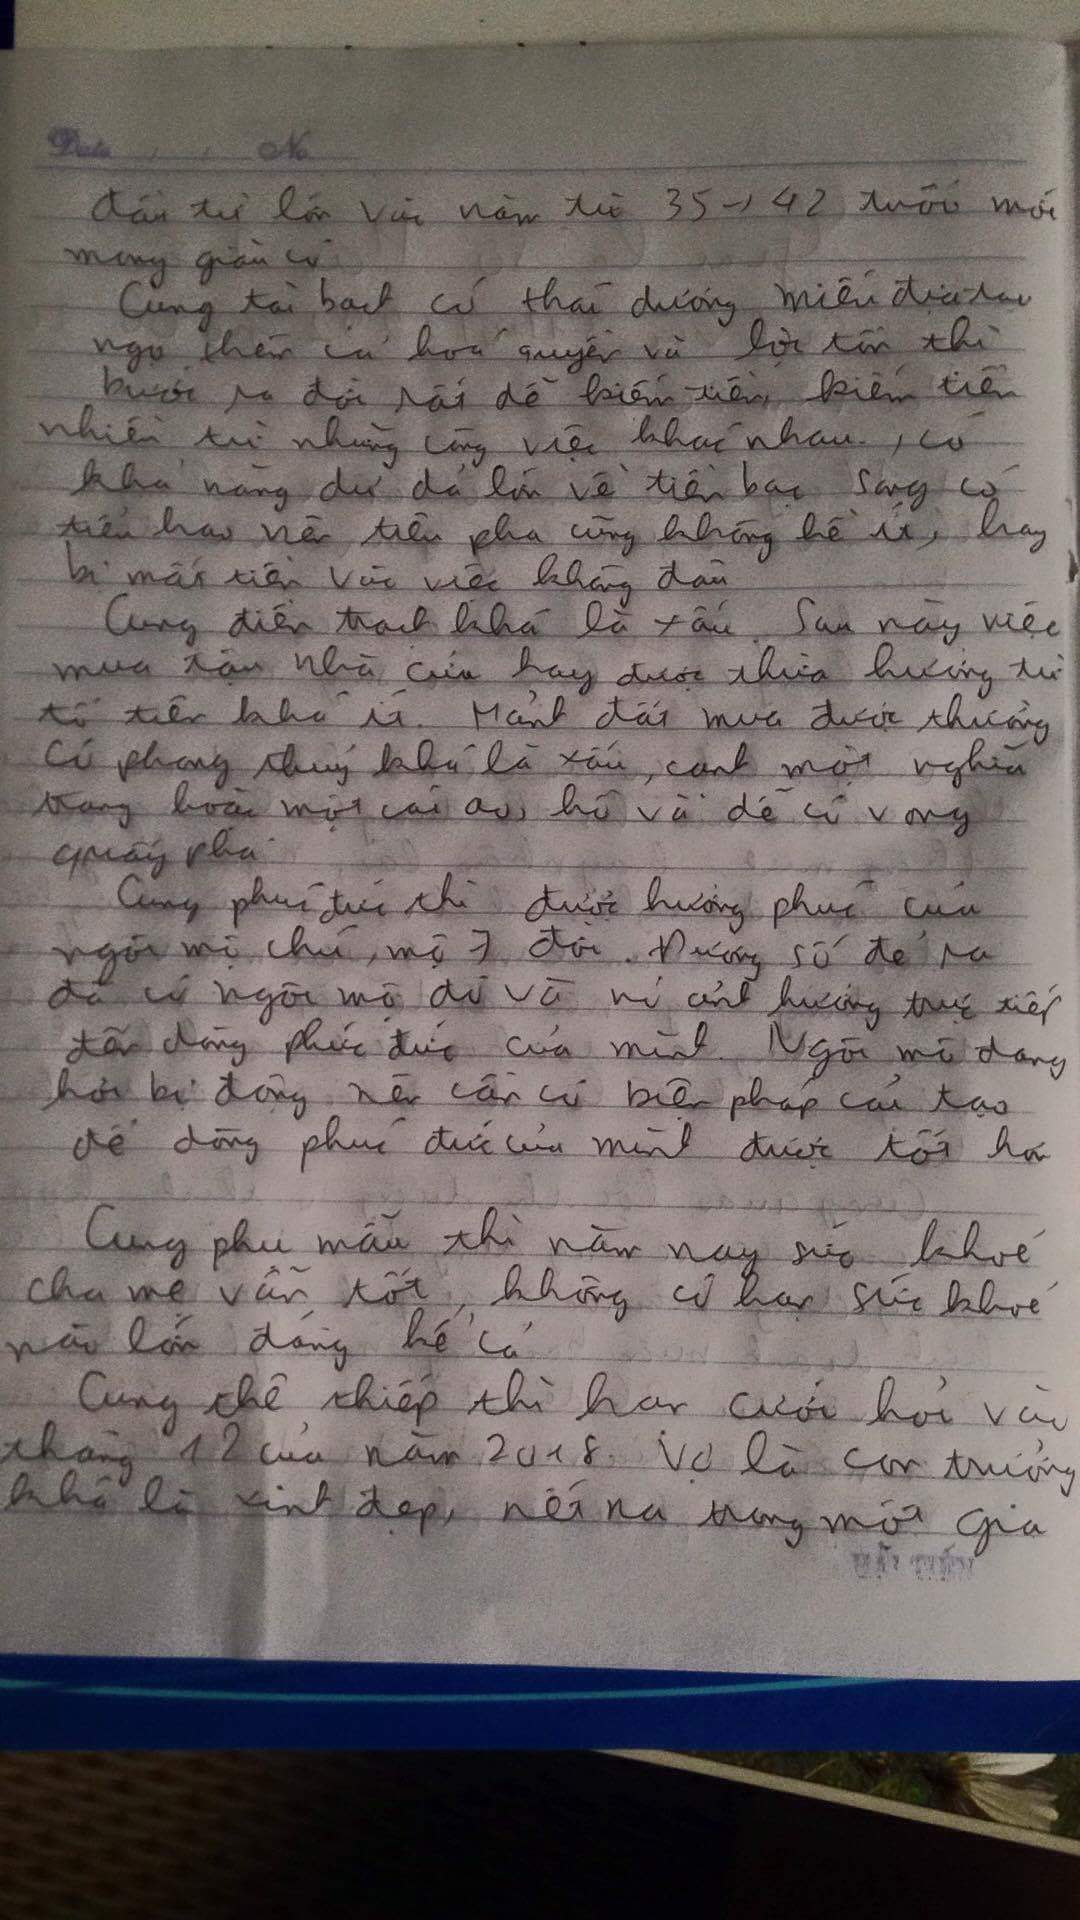 Date , , No
đầu tư lớn vào năm từ 35 → 42 tuổi mới
mong giàu có
Cung tài bạch có thái dương miếu địa tại
ngọ thêm cả hoá quyền và lộc tồn thì
bước ra đời rất dễ kiếm tiền, kiếm tiền
nhiều từ những công việc khác nhau, có
khả năng dư dả lớn về tiền bạc. Song có
tiểu hao nên tiêu pha cũng không hề ít, hay
bị mất tiền vào việc không đâu
Cung điền trạch khá là xấu. Sau này việc
mua tậu nhà cửa hay được thừa hưởng từ
tổ tiên khá ít. Mảnh đất mua được thường
có phong thuỷ khá là xấu, cạnh một nghĩa
trang hoặc một cái ao, hồ và dễ có vong
quấy phá
Cung phúc đức thì được hưởng phúc của
ngôi mộ chú, mộ 7 đời. Dương số đẻ ra
đã có ngôi mộ đó và nó ảnh hưởng trực tiếp
đến dòng phúc đức của mình. Ngôi mộ đang
hơi bị động nên cần có biện pháp cải tạo
để dòng phúc đức của mình được tốt hơn
Cung phụ mẫu thì năm nay sức khoẻ
cha mẹ vẫn tốt, không có hạn sức khoẻ
nào lớn đáng kể cả
Cung thê thiếp thì hạn cưới hỏi vào
tháng 12 của năm 2018. Vợ là con trưởng
khá là xinh đẹp, nết na trong một gia
HẢI TIẾN